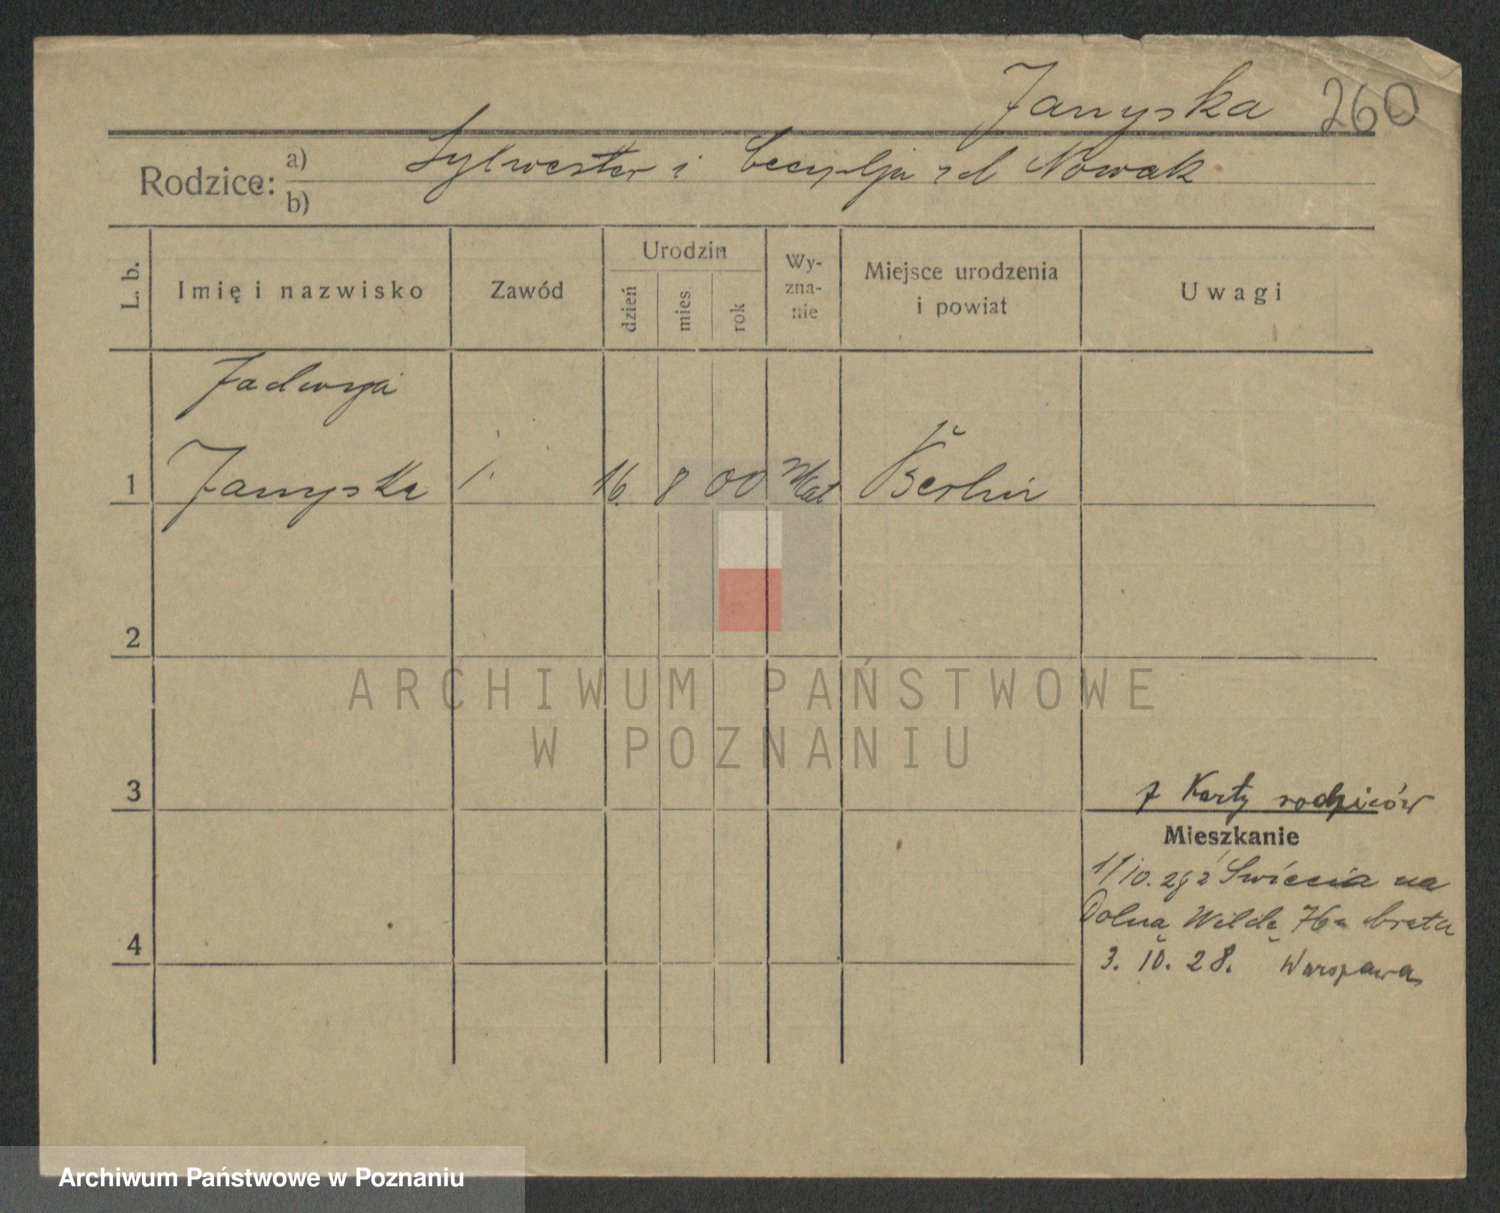 Janyska 260
Rodzice: a) Sylwester i Cecylja zd Nowak
b)
L. b. Imię i nazwisko Zawód Urodzin dzień mies. rok Wy-zna-nie Miejsce urodzenia i powiat Uwagi
Jadwiga
1 Janyska 16 8 00 kat Berlin
2
ARCHIWUM PAŃSTWOWE
W POZNANIU
3 z Karty rodziców
Mieszkanie
1/10. z Świecia na
Dolną Wildę 76 brata
4 3. 10. 28. Warszawa
Archiwum Państwowe w Poznaniu